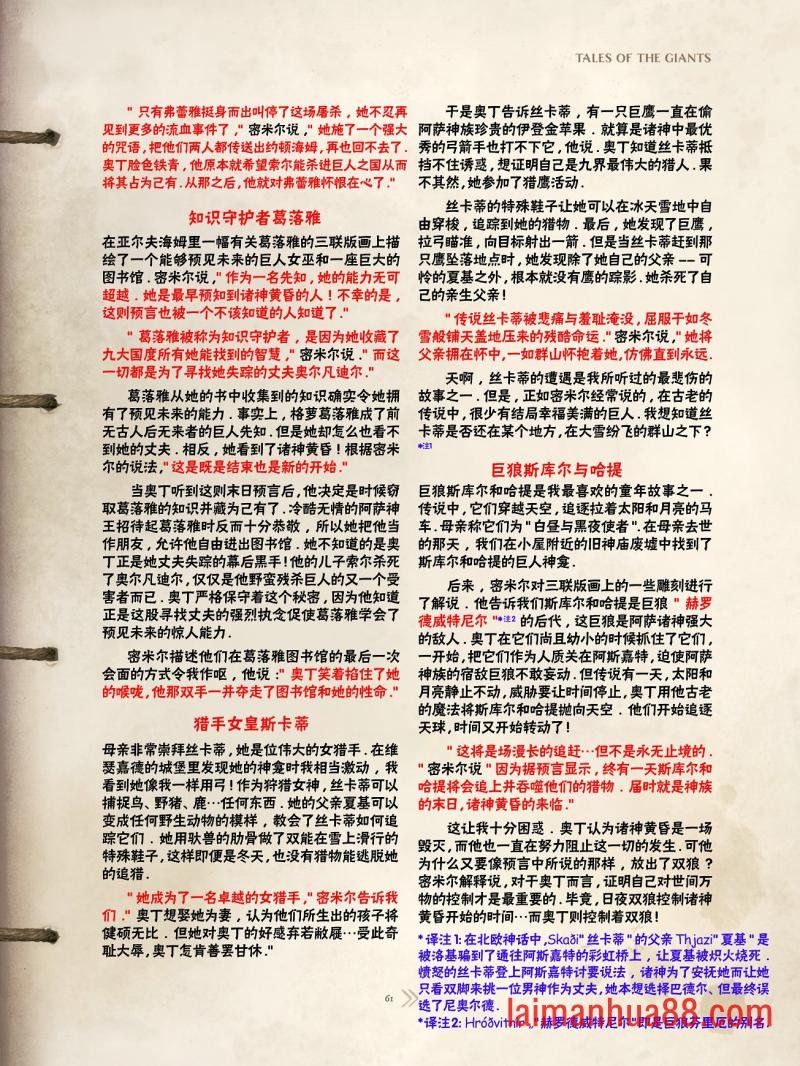 TALES OF THE GIANTS
" 只有弗蕾雅挺身而出叫停了这场屠杀，她不忍再
见到更多的流血事件了，" 密米尔说，" 她施了一个强大
的咒语，把他们两人都传送出约顿海姆，再也回不去了．
奥丁脸色铁青，他原本就希望索尔能杀进巨人之国从而
将其占为己有．从那之后，他就对弗蕾雅怀恨在心了．"
知识守护者葛落雅
在亚尔夫海姆里一幅有关葛落雅的三联版画上描
绘了一个能够预见未来的巨人女巫和一座巨大的
图书馆．密米尔说，" 作为一名先知，她的能力无可
超越．她是最早预知到诸神黄昏的人！不幸的是，
这则预言也被一个不该知道的人知道了．"
" 葛落雅被称为知识守护者，是因为她收藏了
九大国度所有她能找到的智慧，" 密米尔说．" 而这
一切都是为了寻找她失踪的丈夫奥尔凡迪尔．"
葛落雅从她的书中收集到的知识确实令她拥
有了预见未来的能力．事实上，格萝葛落雅成了前
无古人后无来者的巨人先知．但是她却怎么也看不
到她的丈夫．相反，她看到了诸神黄昏！根据密米
尔的说法，" 这是既是结束也是新的开始．"
当奥丁听到这则末日预言后，他决定是时候窃
取葛落雅的知识并藏为己有了．冷酷无情的阿萨神
王招待起葛落雅时反而十分恭敬，所以她把他当
作朋友，允许他自由进出图书馆．她不知道的是奥
丁正是她丈夫失踪的幕后黑手！他的儿子索尔杀死
了奥尔凡迪尔，仅仅是他野蛮残杀巨人的又一个受
害者而已．奥丁严格保守着这个秘密，因为他知道
正是这股寻找丈夫的强烈执念促使葛落雅学会了
预见未来的惊人能力．
密米尔描述他们在葛落雅图书馆的最后一次
会面的方式令我作呕，他说：" 奥丁笑着掐住了她
的喉咙，他那双手一并夺走了图书馆和她的性命．"
猎手女皇斯卡蒂
母亲非常崇拜丝卡蒂，她是位伟大的女猎手．在维
瑟嘉德的城堡里发现她的神龛时我相当激动，我
看到她像我一样用弓！作为狩猎女神，丝卡蒂可以
捕捉鸟、野猪、鹿…任何东西．她的父亲夏基可以
变成任何野生动物的模样，教会了丝卡蒂如何追
踪它们．她用驮兽的肋骨做了双能在雪上滑行的
特殊鞋子，这样即便是冬天，也没有猎物能逃脱她
的追猎．
" 她成为了一名卓越的女猎手，" 密米尔告诉我
们．" 奥丁想娶她为妻，认为他们所生出的孩子将
健硕无比．但她对奥丁的好感弃若敝屣…受此奇
耻大辱，奥丁怎肯善罢甘休．"
于是奥丁告诉丝卡蒂，有一只巨鹰一直在偷
阿萨神族珍贵的伊登金苹果．就算是诸神中最优
秀的弓箭手也打不下它，他说．奥丁知道丝卡蒂抵
挡不住诱惑，想证明自己是九界最伟大的猎人．果
不其然，她参加了猎鹰活动．
丝卡蒂的特殊鞋子让她可以在冰天雪地中自
由穿梭，追踪到她的猎物．最后，她发现了巨鹰，
拉弓瞄准，向目标射出一箭．但是当丝卡蒂赶到那
只鹰坠落地点时，她发现除了她自己的父亲 —— 可
怜的夏基之外，根本就没有鹰的踪影．她杀死了自
己的亲生父亲！
" 传说丝卡蒂被悲痛与羞耻淹没，屈服于如冬
雪般铺天盖地压来的残酷命运．" 密米尔说，" 她将
父亲拥在怀中，一如群山怀抱着她，仿佛直到永远．
天啊，丝卡蒂的遭遇是我所听过的最悲伤的
故事之一．但是，正如密米尔经常说的，在古老的
传说中，很少有结局幸福美满的巨人．我想知道丝
卡蒂是否还在某个地方，在大雪纷飞的群山之下？
*注1
巨狼斯库尔与哈提
巨狼斯库尔和哈提是我最喜欢的童年故事之一．
传说中，它们穿越天空，追逐拉着太阳和月亮的马
车．母亲称它们为" 白昼与黑夜使者"．在母亲去世
的那天，我们在小屋附近的旧神庙废墟中找到了
斯库尔和哈提的巨人神龛．
后来，密米尔对三联版画上的一些雕刻进行
了解说．他告诉我们斯库尔和哈提是巨狼 " 赫罗
德威特尼尔 "*注2 的后代，这巨狼是阿萨诸神强大
的敌人．奥丁在它们尚且幼小的时候抓住了它们，
一开始，把它们作为人质关在阿斯嘉特，迫使阿萨
神族的宿敌巨狼不敢妄动．但传说有一天，太阳和
月亮静止不动，威胁要让时间停止，奥丁用他古老
的魔法将斯库尔和哈提抛向天空．他们开始追逐
天球，时间又开始转动了！
" 这将是场漫长的追赶…但不是永无止境的．
" 密米尔说 " 因为据预言显示，终有一天斯库尔和
哈提将会追上并吞噬他们的猎物．届时就是神族
的末日，诸神黄昏的来临．"
这让我十分困惑．奥丁认为诸神黄昏是一场
毁灭，而他也一直在努力阻止这一切的发生．可他
为什么又要像预言中所说的那样，放出了双狼？
密米尔解释说，对于奥丁而言，证明自己对世间万
物的控制才是最重要的．毕竟，日夜双狼控制诸神
黄昏开始的时间…而奥丁则控制着双狼！
*译注1：在北欧神话中，Skaði" 丝卡蒂" 的父亲 Thjazi" 夏基" 是
被洛基骗到了通往阿斯嘉特的彩虹桥上，让夏基被炽火烧死．
愤怒的丝卡蒂登上阿斯嘉特讨要说法，诸神为了安抚她而让她
只看双脚来挑一位男神作为丈夫，她本想选择巴德尔、但最终误
选了尼奥尔德．
*译注2：Hróðvitnir，" 赫罗德威特尼尔" 即是巨狼芬里厄的别名．
61
laimanhua88.com